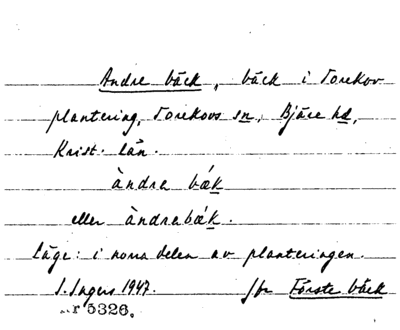 Andre bäck, bäck i Torekov
plantering, Torekovs sn, Bjäre hd,
Krist. län.
àndre bǽk
eller àndrebǽk.
läge: i norra delen av planteringen.
S. Ingers 1947. Jfr Förste bäck
nr 5326.